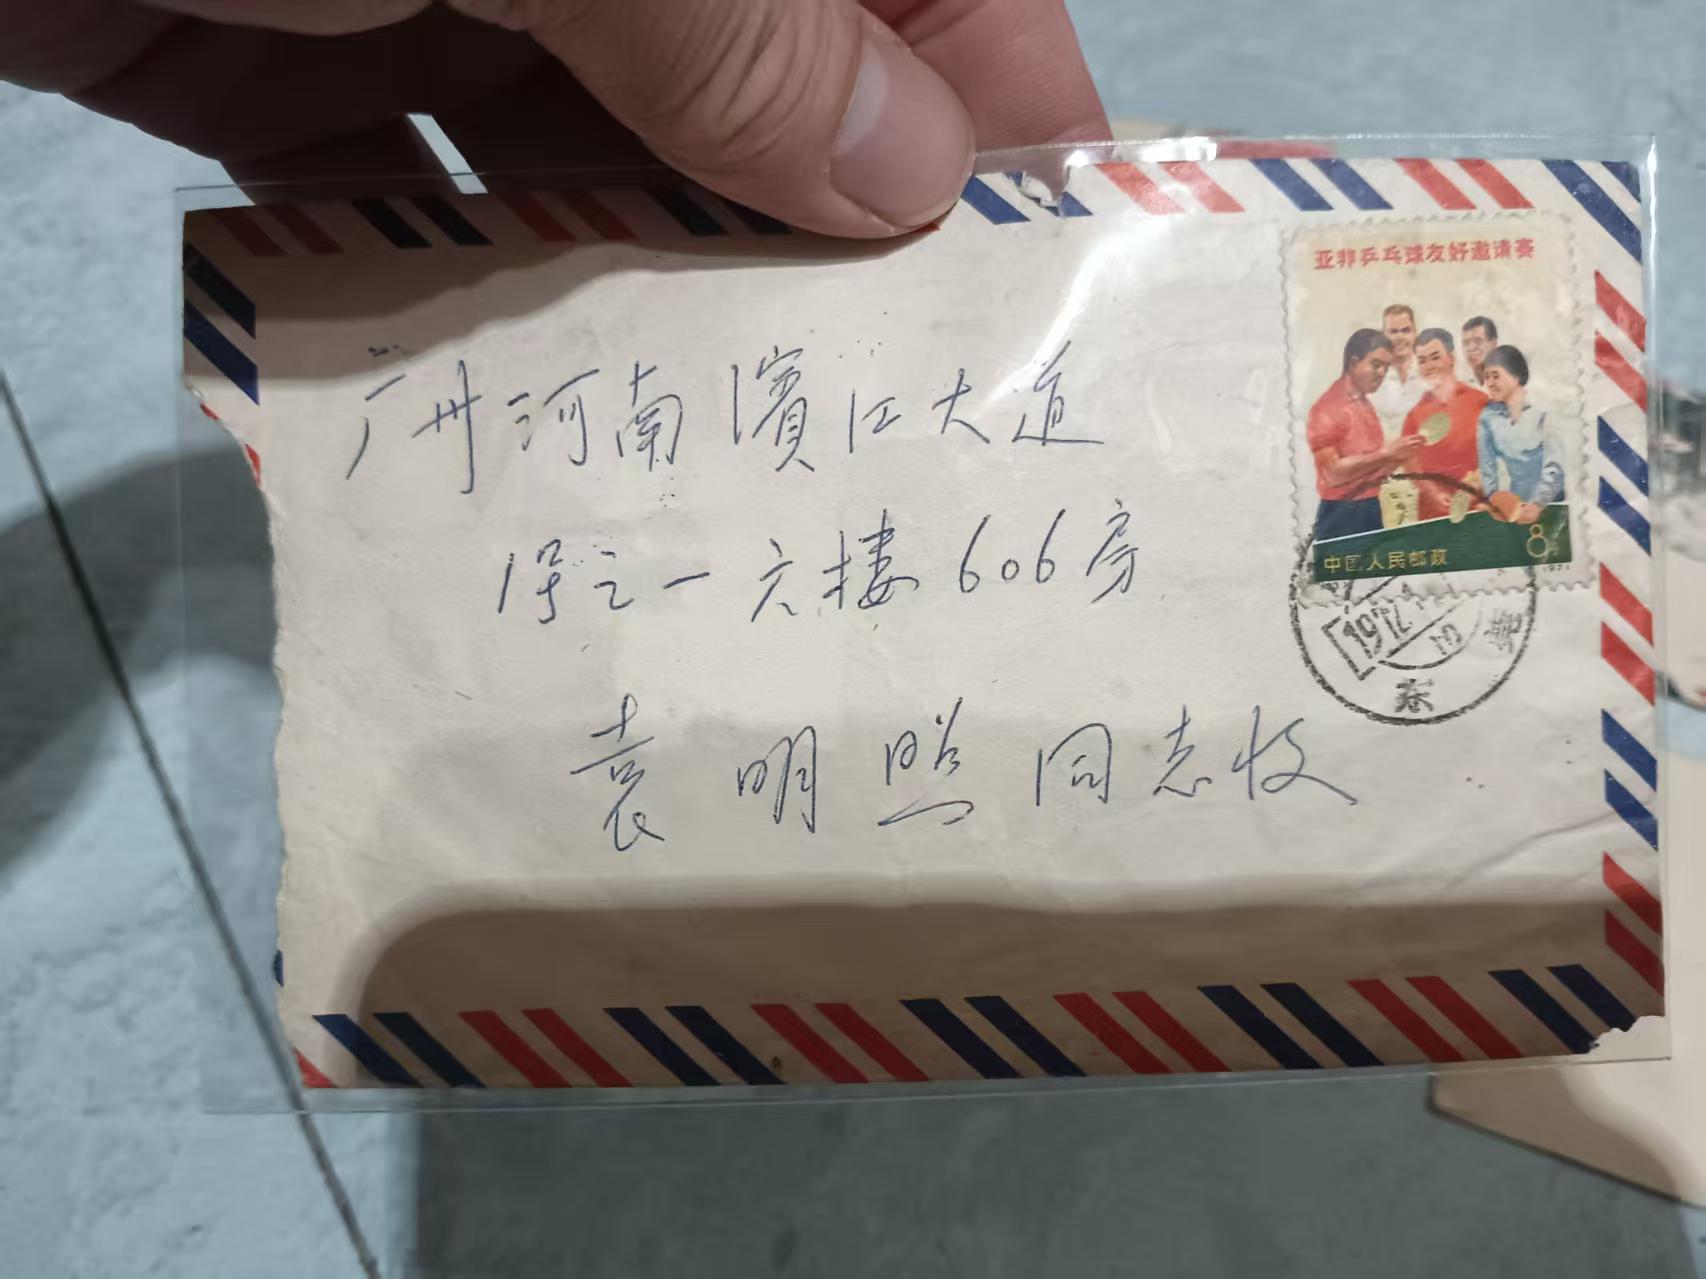 亚非乒乓球友好邀请赛
中国人民邮政
8分
1971
广州河南濱江大道
1号之一六楼606房
袁明照同志收
东